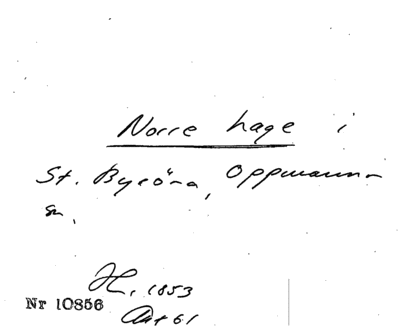 Norre hage i
St. Byröra, Oppmanna-
sn.
1853
Nr 10856
Ant 61